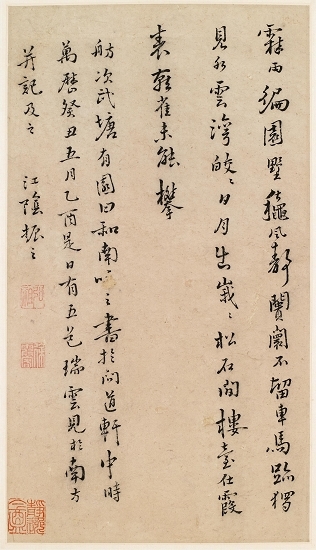 霖雨編園墅風靜闠闤不留車馬跡獨
見水雲灣皎〻日月出〻松石間樓臺霞
表雀未能攀
舫次武塘有園曰和南之書於問道軒中時
萬曆癸丑五月乙酉是日有五色瑞雲見於南方
并記及之 江陰振之